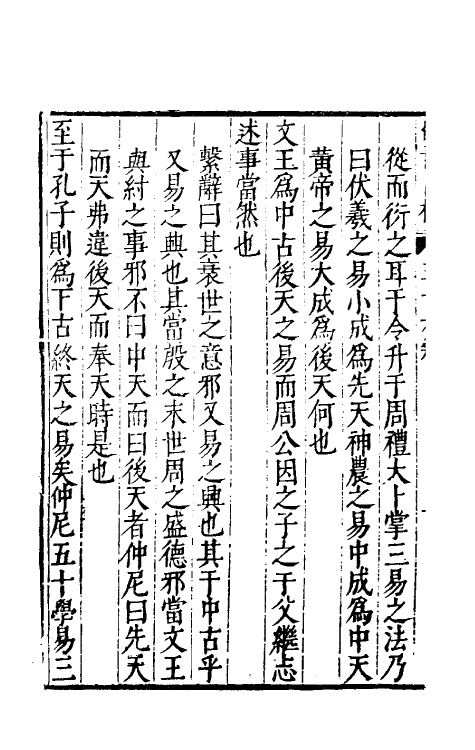 從而衍之耳于令升于周禮大卜掌三易之法乃
曰伏羲之易小成爲先天神農之易中成爲中天
黃帝之易大成爲後天何也
文王爲中古後天之易而周公因之子之于父繼志
述事當然也
繫辭曰其衰世之意邪又易之興也其于中古乎
又易之興也其當殷之末世周之盛德邪當文王
與紂之事邪不曰中天而曰後天者仲尼曰先天
而天弗違後天而奉天時是也
至于孔子則爲下古終天之易矣仲尼五十學易三